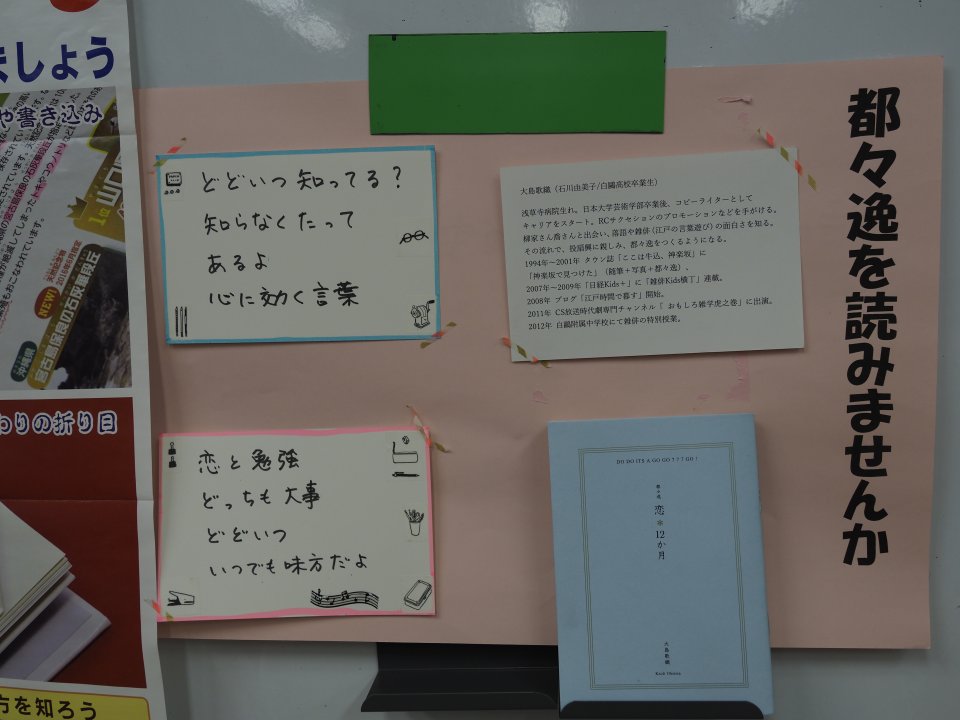 都々逸を読みませんか
どどいつ知ってる？
知らなくたって
あるよ
心に効く言葉
大島歌織（石川由美子/白鷗高校卒業生）
浅草寺病院生れ、日本大学芸術学部卒業後、コピーライターとして
キャリアをスタート。RCサクセションのプロモーションなどを手がける。
柳家さん喬さんと出会い、落語や雑俳（江戸の言葉遊び）の面白さを知る。
その流れで、投扇興に親しみ、都々逸をつくるようになる。
1994年～2001年 タウン誌「ここは牛込、神楽坂」に
「神楽坂で見つけた」（随筆＋写真＋都々逸）、
2007年～2009年「日経Kids＋」に「雑俳Kids横丁」連載。
2008年 ブログ「江戸時間で暮す」開始。
2011年 CS放送時代劇専門チャンネル『おもしろ雑学虎之巻』に出演。
2012年 白鷗附属中学校にて雑俳の特別授業。
恋と勉強
どっちも大事
どどいつ
いつでも味方だよ
DO DO ITS A GO GO 7 7 7 GO !
都々逸
恋＊12か月
大島歌織
Kaori Ohshima
ましょう
や書き込み
1位
NEW!
沖縄県
宮古島保良の石灰華段丘
わりの折り目
方を知ろう